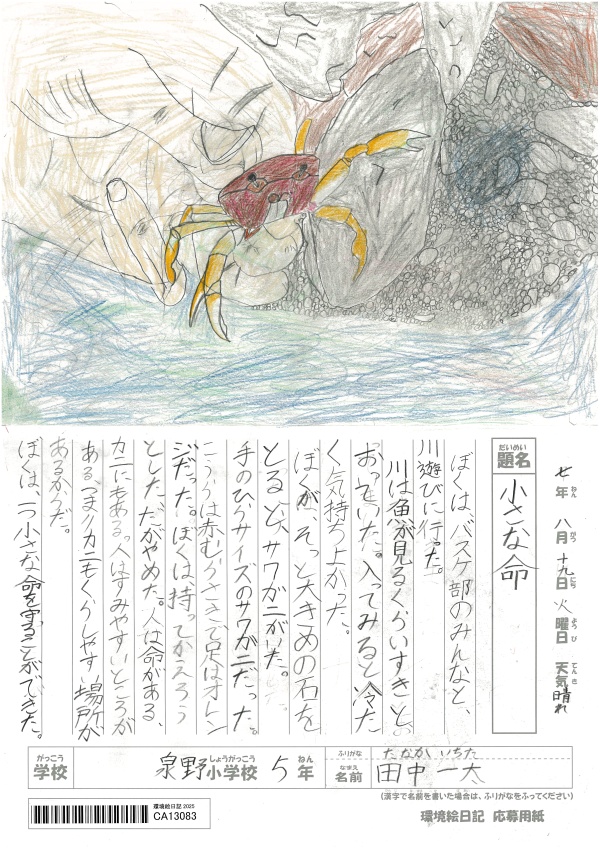 七年 八月 十九日 火曜日 天気 晴れ
ねん がつ にち ようび てんき
だいめい
題名
小さな命
ぼくは、バスケ部のみんなと、
川遊びに行った。
川は魚が見るくらいすきと
おっていた。入ってみると冷た
く気持ちよかった。
ぼくが、そっと大きめの石を
とると、サワガニがいた。
手のひらサイズのサワガニだった。
こうらは赤むらさきで足はオレン
ジだった。ぼくは持ってかえろう
とした。だがやめた。人は命がある、
カニにもある。人はすみやすいところが
ある、つまりカニもくらしやすい場所が
あるからだ。
ぼくは、一つ小さな命を守ることができた。
がっこう
学校
泉野小学校 5年
しょうがっこう ねん
ふりがな たなか いちた
なまえ
名前 田中 一太
(漢字で名前を書いた場合は、ふりがなをふってください)
環境絵日記 2025
CA13083
環境絵日記 応募用紙